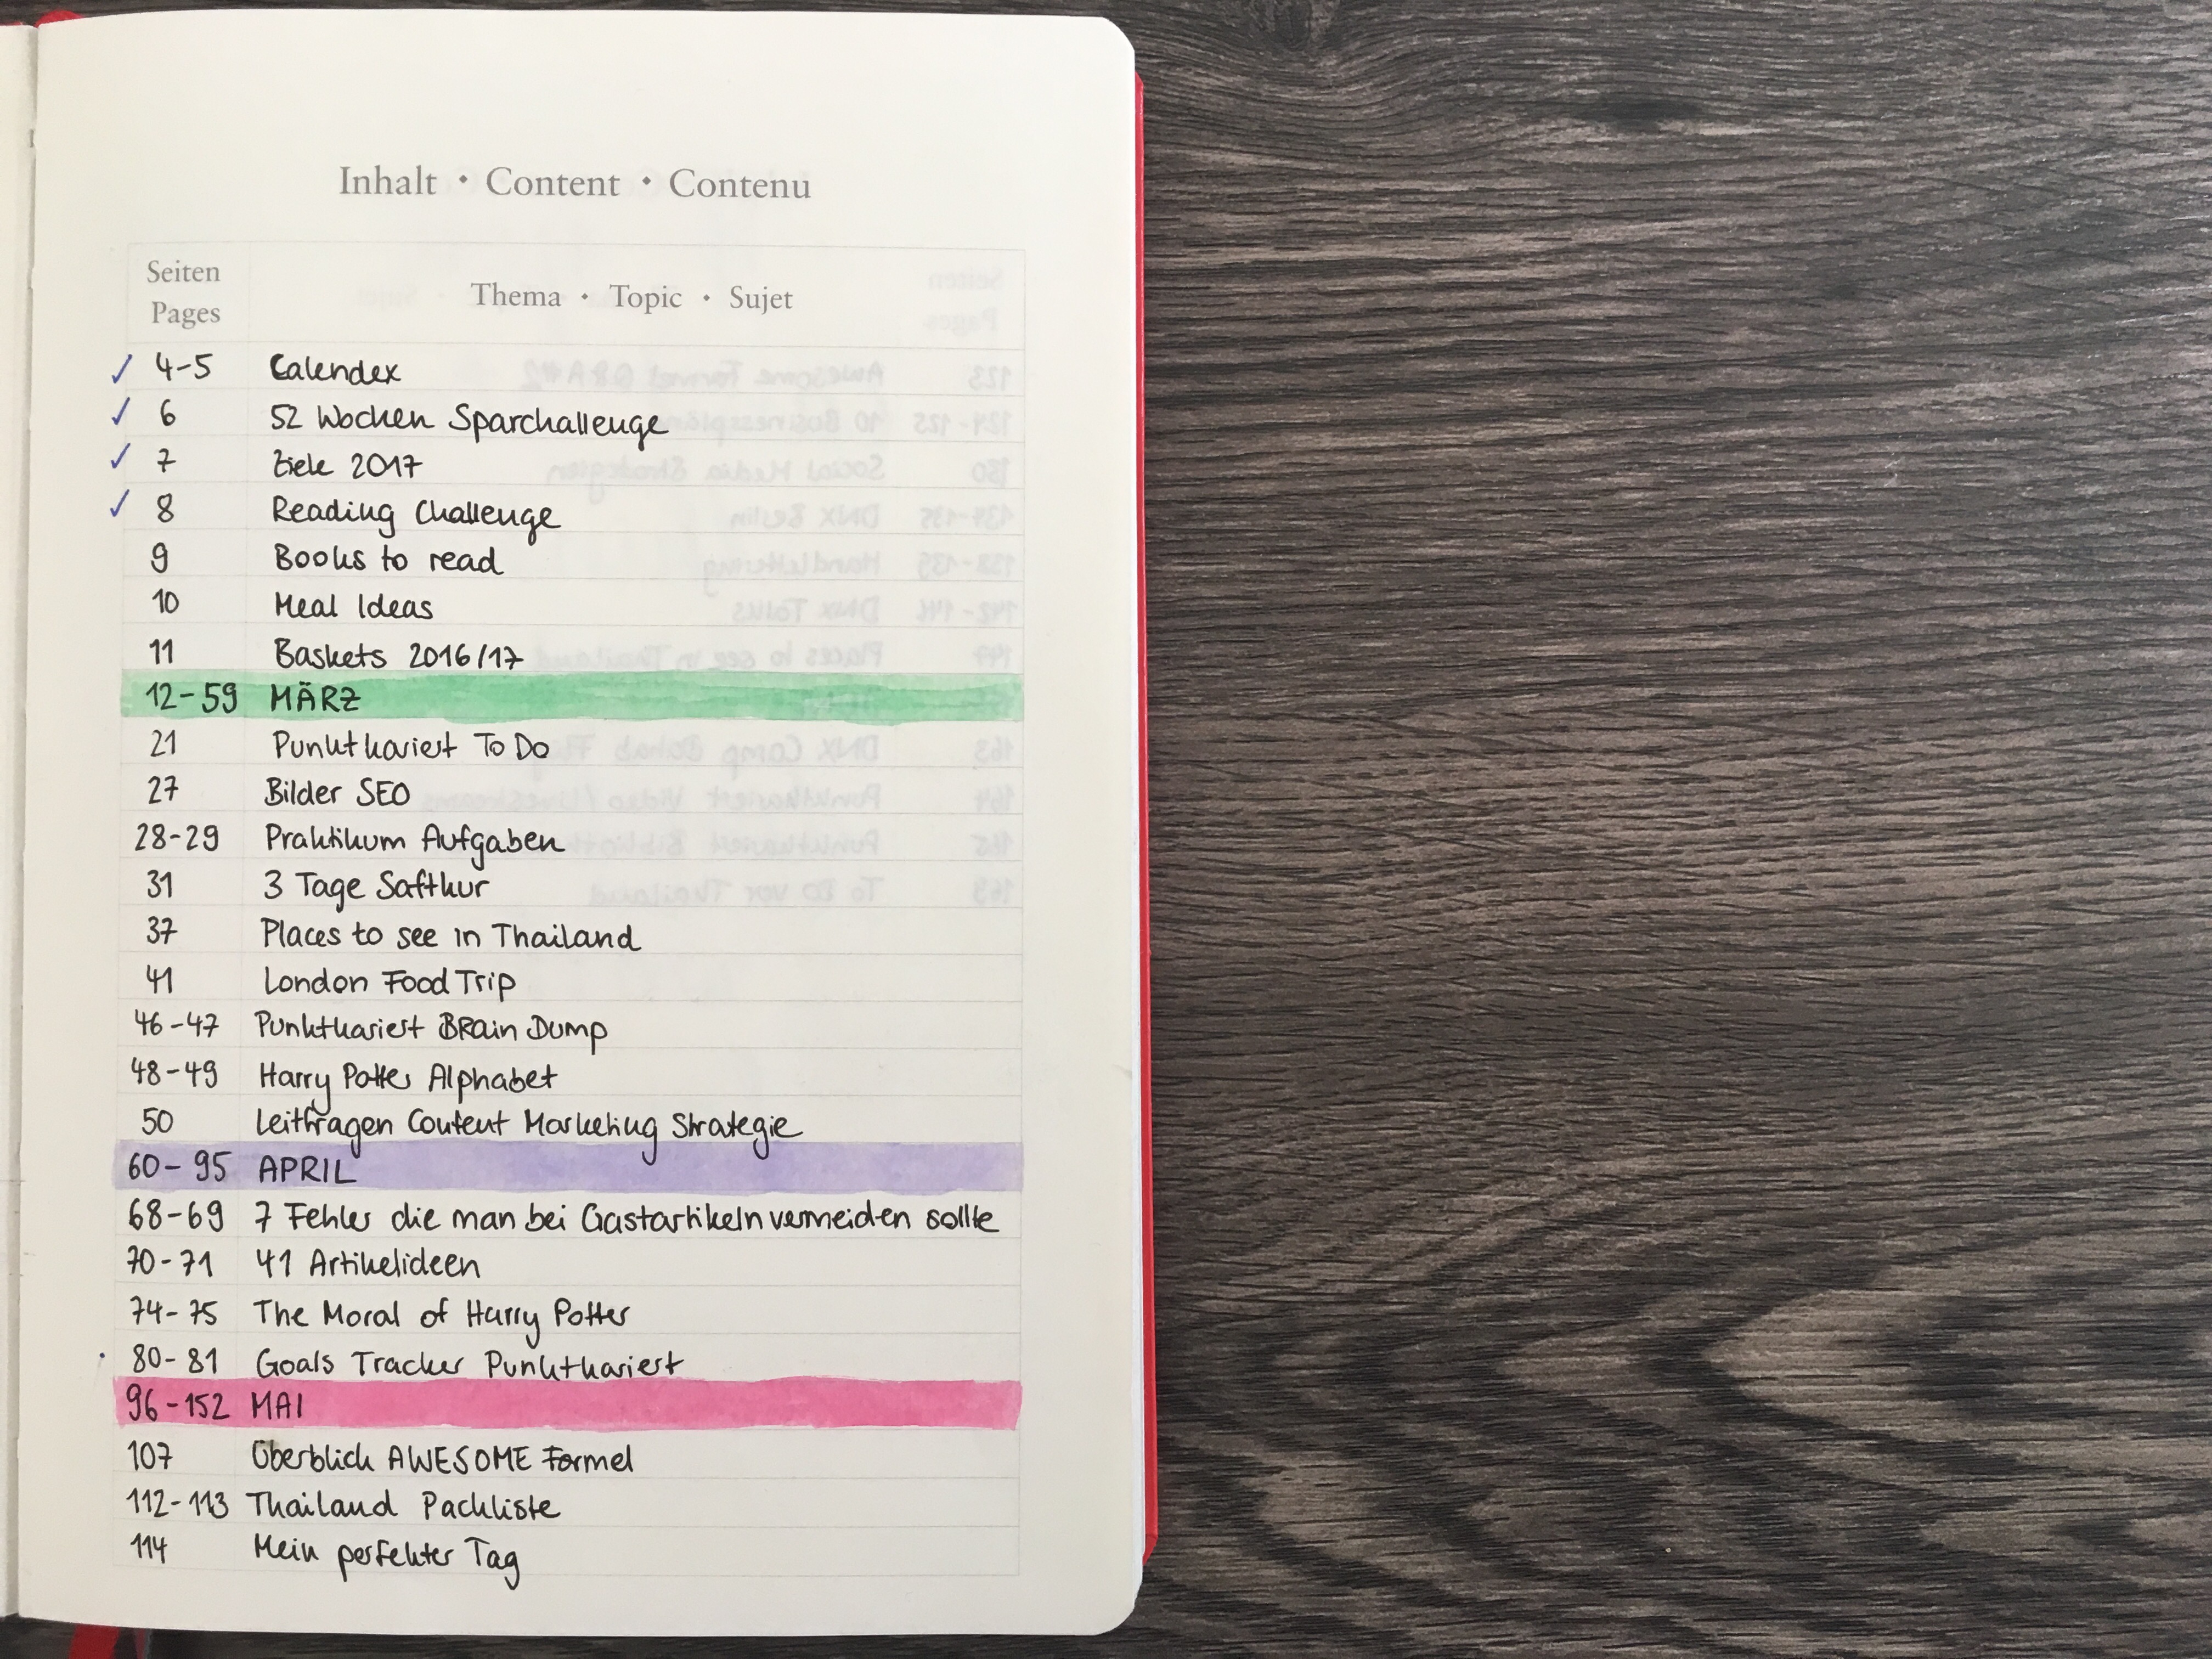 Inhalt · Content · Contenu
Seiten
Pages
Thema · Topic · Sujet
✓ 4-5 Calendex
✓ 6 52 Wochen Sparchallenge
✓ 7 Ziele 2017
✓ 8 Reading Challenge
9 Books to read
10 Meal Ideas
11 Baskets 2016/17
12-59 MÄRZ
21 Punktkariert To Do
27 Bilder SEO
28-29 Praktikum Aufgaben
31 3 Tage Saftkur
37 Places to see in Thailand
41 London Food Trip
46-47 Punktkariert BRain Dump
48-49 Harry Potter Alphabet
50 Leitfragen Content Marketing Strategie
60-95 APRIL
68-69 7 Fehler die man bei Gastartikeln vermeiden sollte
70-71 41 Artikelideen
74-75 The Moral of Harry Potter
80-81 Goals Tracker Punktkariert
96-152 MAI
107 Überblick AWESOME Formel
112-113 Thailand Packliste
114 Mein perfekter Tag